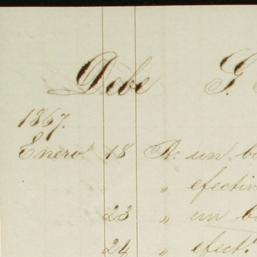 Debe G.
1867.
Enero 18 Pr. un bo
" efectiv
23 " un b
24 " efect.